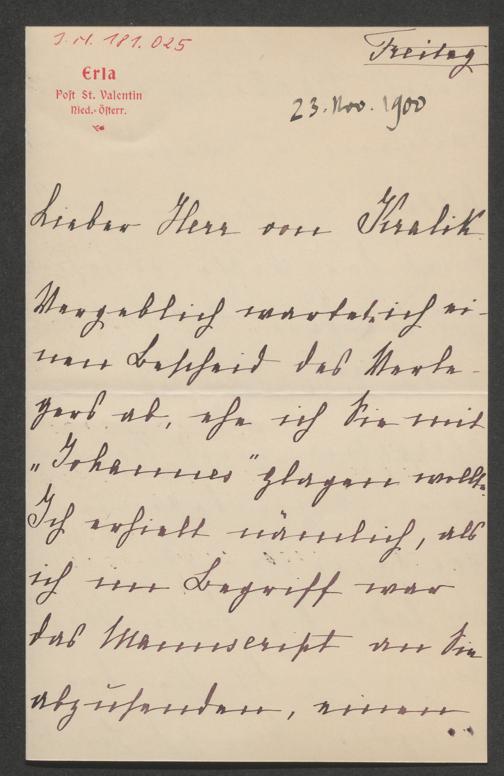 J.N. 181.025
Freitag
Erla
Post St. Valentin
Nied.-Österr.
23. Nov. 1900
Lieber Herr von Kralik
Vergeblich wartet ich ei-
nen Bescheid des Verle-
gers ab, ehe ich Sie mit
„Johannes" plagen wollte.
Ich erhielt nämlich, als
ich im Begriff war
das Manuscript an Sie
abzusenden, einen